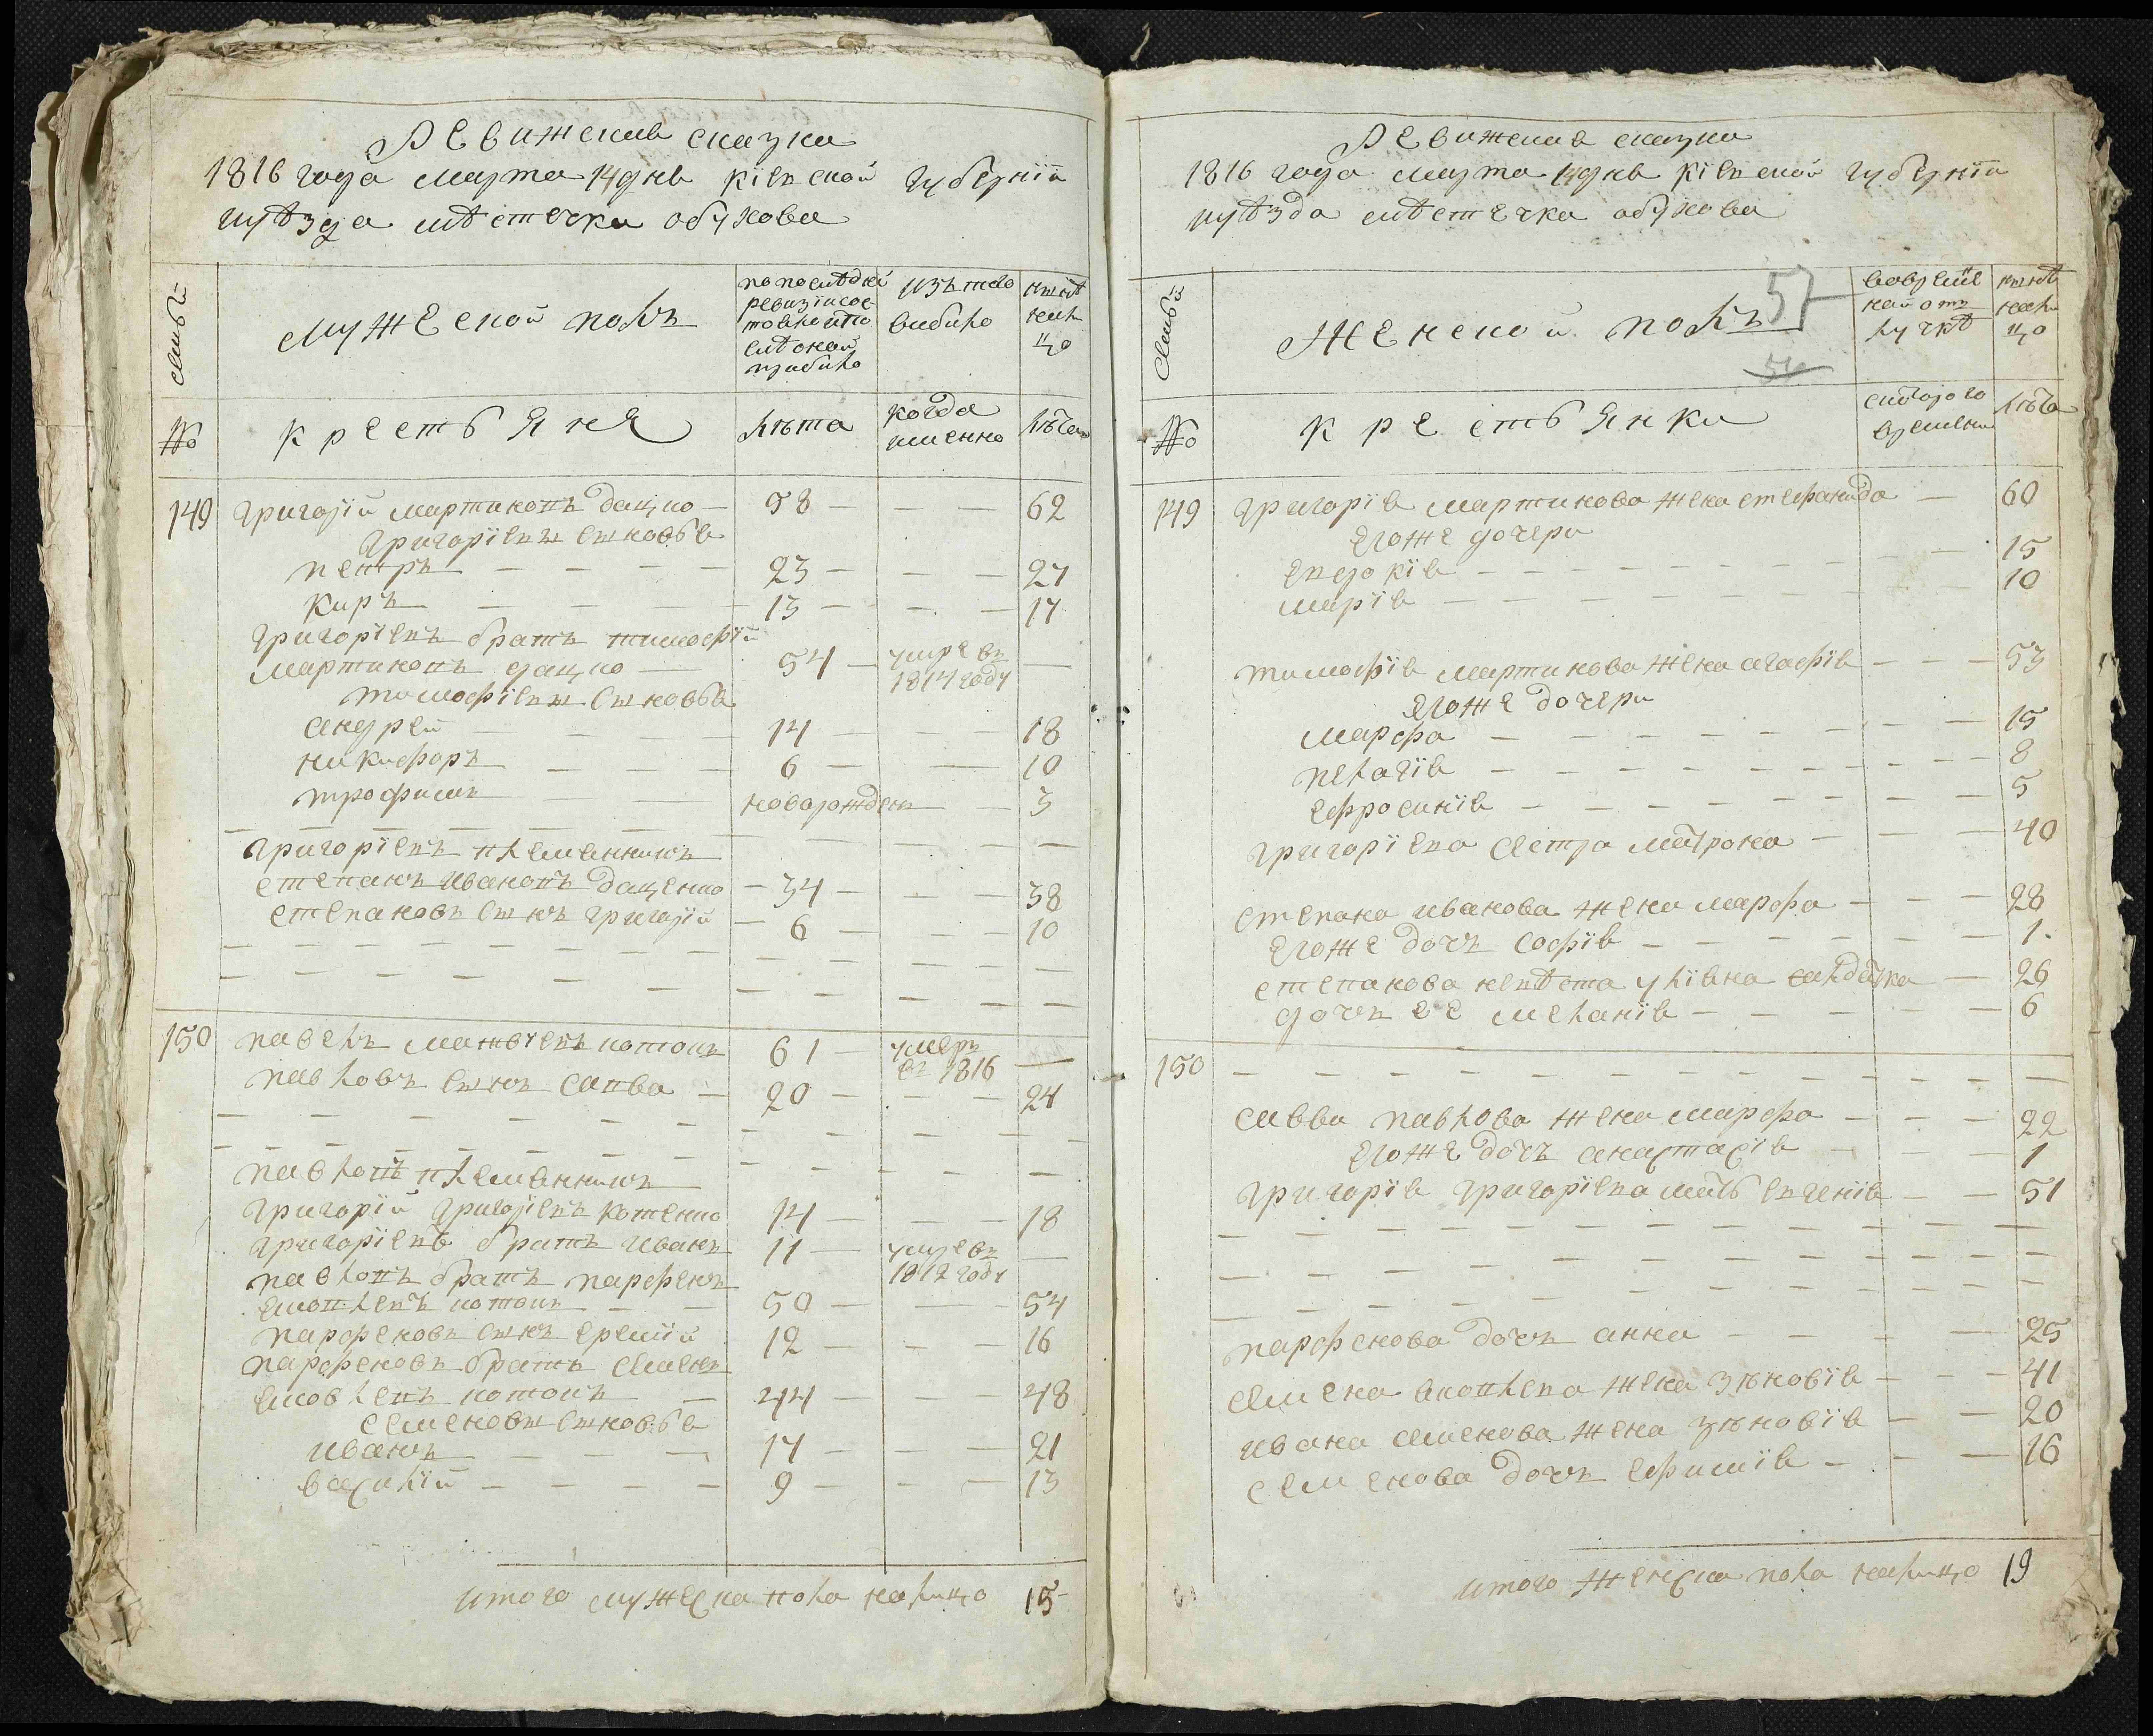 Ревижская сказка
1816 года марта 14 дня кіевской губерніи
и уѣзда мѣстечка обухова
Семьи
мужеской полъ
по последней ревизіи состояло и после оной прибыло
изъ того выбыло
нынѣ налицо
№
крестьяня
лѣта
когда именно
лѣта
149 григорій мартиновъ дацко — 58 — — — 62
григоріевы сыновья
петръ — — — — 23 — — — 27
киръ — — — 13 — — — 17
григоріевъ братъ тимофій
мартиновъ дацко — 54 — умре въ 1814 году —
тимофіевы сыновья
андрей — — — 14 — — — 18
никифоръ — — — 6 — — 10
трофимъ — — новорожденъ — — 3
григоріевъ племянникъ
степанъ ивановъ даценко — 34 — — — 38
степановъ сынъ григорій — 6 — — — 10
150 павелъ матвіевъ котокъ 61 — умеръ въ 1816 —
павловъ сынъ савва — 20 — — — 24
павловъ племянникъ
григорій григоріевъ котенко 14 — — — 18
григоріевъ братъ иванъ 11 — умре въ 1812 году —
павловъ братъ парфенъ
яковлевъ котокъ — — 50 — — — 54
парфеновъ сынъ еремій 12 — — — 16
парфеновъ братъ семенъ
яковлевъ котокъ — 44 — — — 48
семеновы сыновья
иванъ — — — 17 — — — 21
василій — — — — 9 — — — 13
итого мужеска пола налицо 15
Ревижская сказка
1816 года марта 14 дня кіевской губерніи
и уѣзда мѣстечка обухова
57
Семьи
женской полъ
во временной отлучкѣ
нынѣ налицо
№
крестьянки
с котораго времени
лѣта
149 григорія мартинова жена стефанида — 60
его же дочери
евдокія — — — 15
марія — — — 10
тимофія мартинова жена агафія — — — 53
его же дочери
марфа — — — 15
пелагія — — — 8
ефросинія — — — 5
григоріева сестра матрона — — — 40
степана иванова жена марфа — — — 28
его же дочъ софія — — — 1
степанова невѣста уліяна салдатка — 26
дочъ её меланія — — — 6
150 — — —
саввы павлова жена марфа — — — 22
его же дочъ анастасія — — — 1
григорія григоріева мать евгенія — — 51
парфенова дочъ анна — — — 25
семена яковлева жена зѣновія — — — 41
ивана семенова жена зѣновія — — 20
семенова дочъ ефимія — — — 16
итого женска пола налицо 19